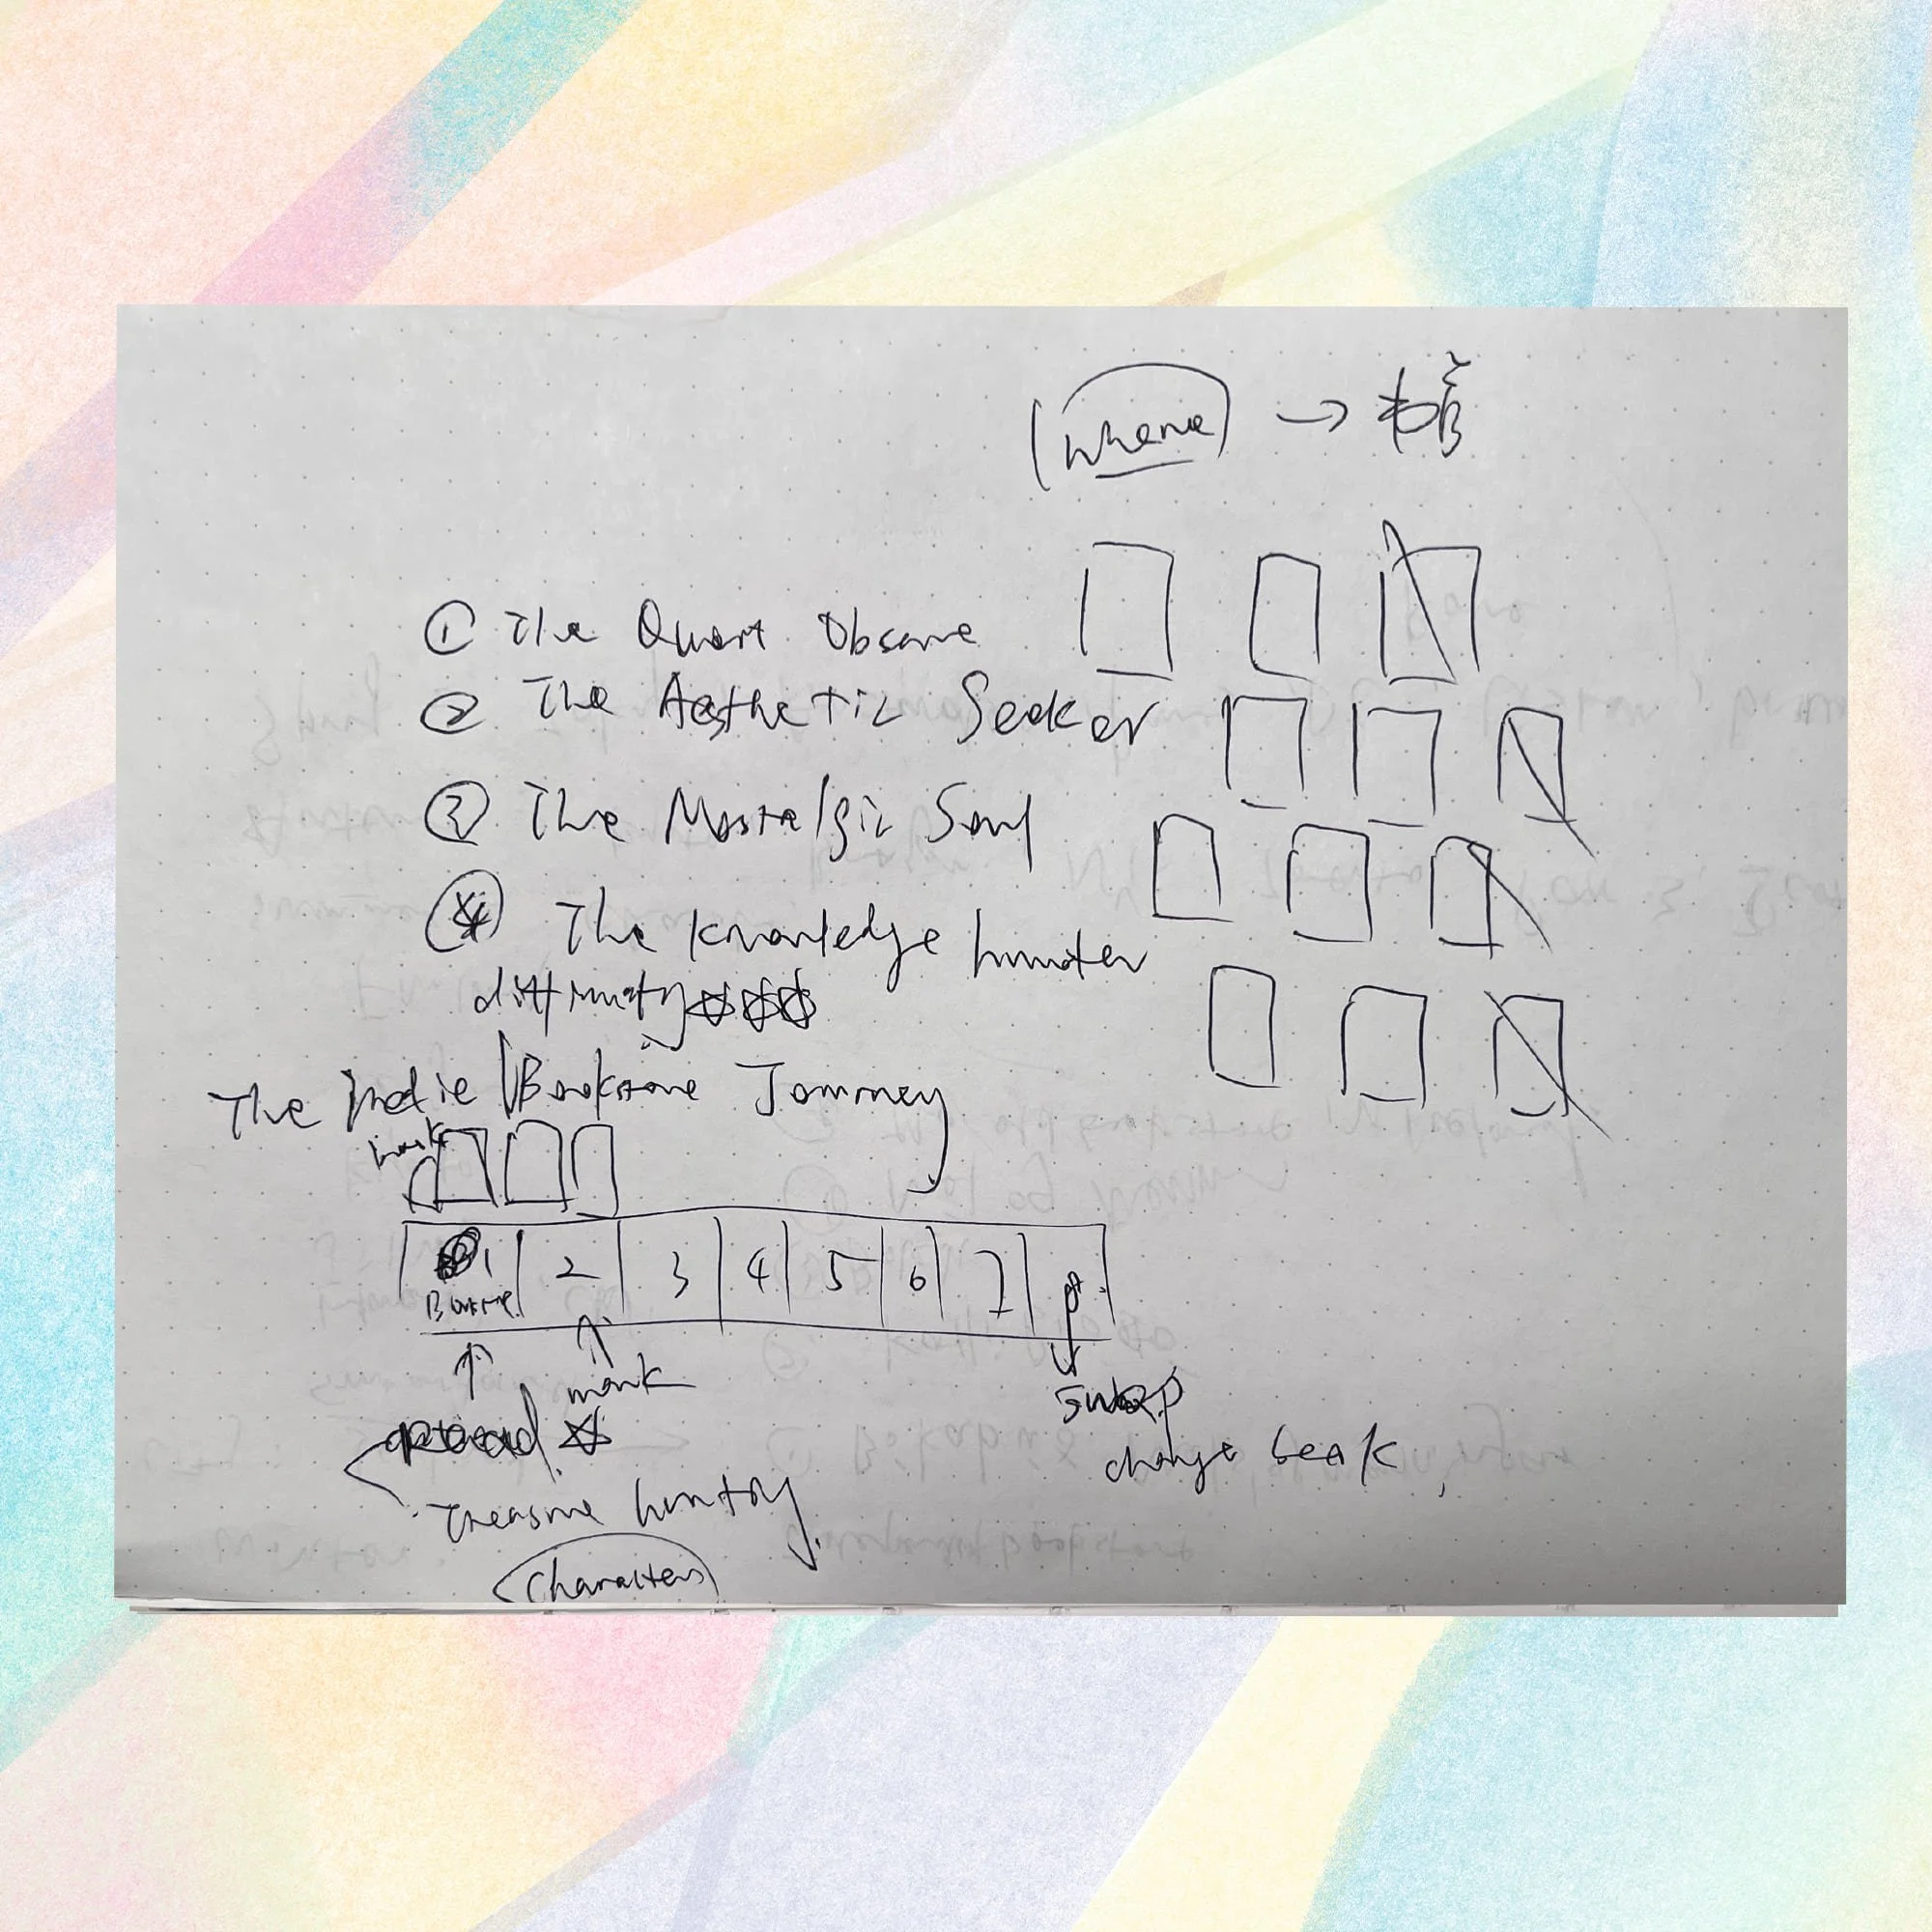 ① The Quiet Observe
② The Aesthetic Seeker
③ The Nostalgic Soul
④ The Knowledge hunter
difficulty
The Indie Bookstore Journey
1 2 3 4 5 6 7 8
mark
swap
change book
Treasure hunting
Characters